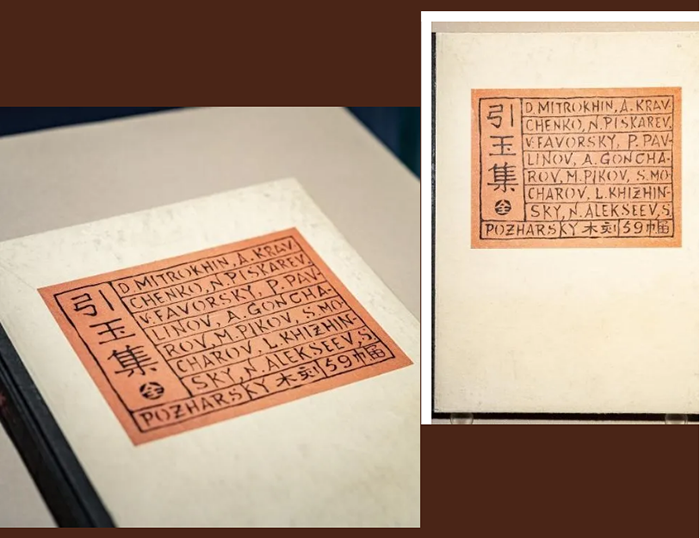 引玉集
全
D. MITROKHIN, A. KRAV
CHENKO, N. PISKAREV,
V. FAVORSKY, P. PAV-
LINOV, A. GONCHA-
ROV, M. PIKOV, S. MO
CHAROV, L. KHIZHIN-
SKY, N. ALEKSEEV, S.
POZHARSKY 木刻59幅
引玉集
全
D. MITROKHIN, A. KRAV
CHENKO, N. PISKAREV,
V. FAVORSKY, P. PAV-
LINOV, A. GONCHA-
ROV, M. PIKOV, S. MO
CHAROV, L. KHIZHIN-
SKY, N. ALEKSEEV, S.
POZHARSKY 木刻59幅